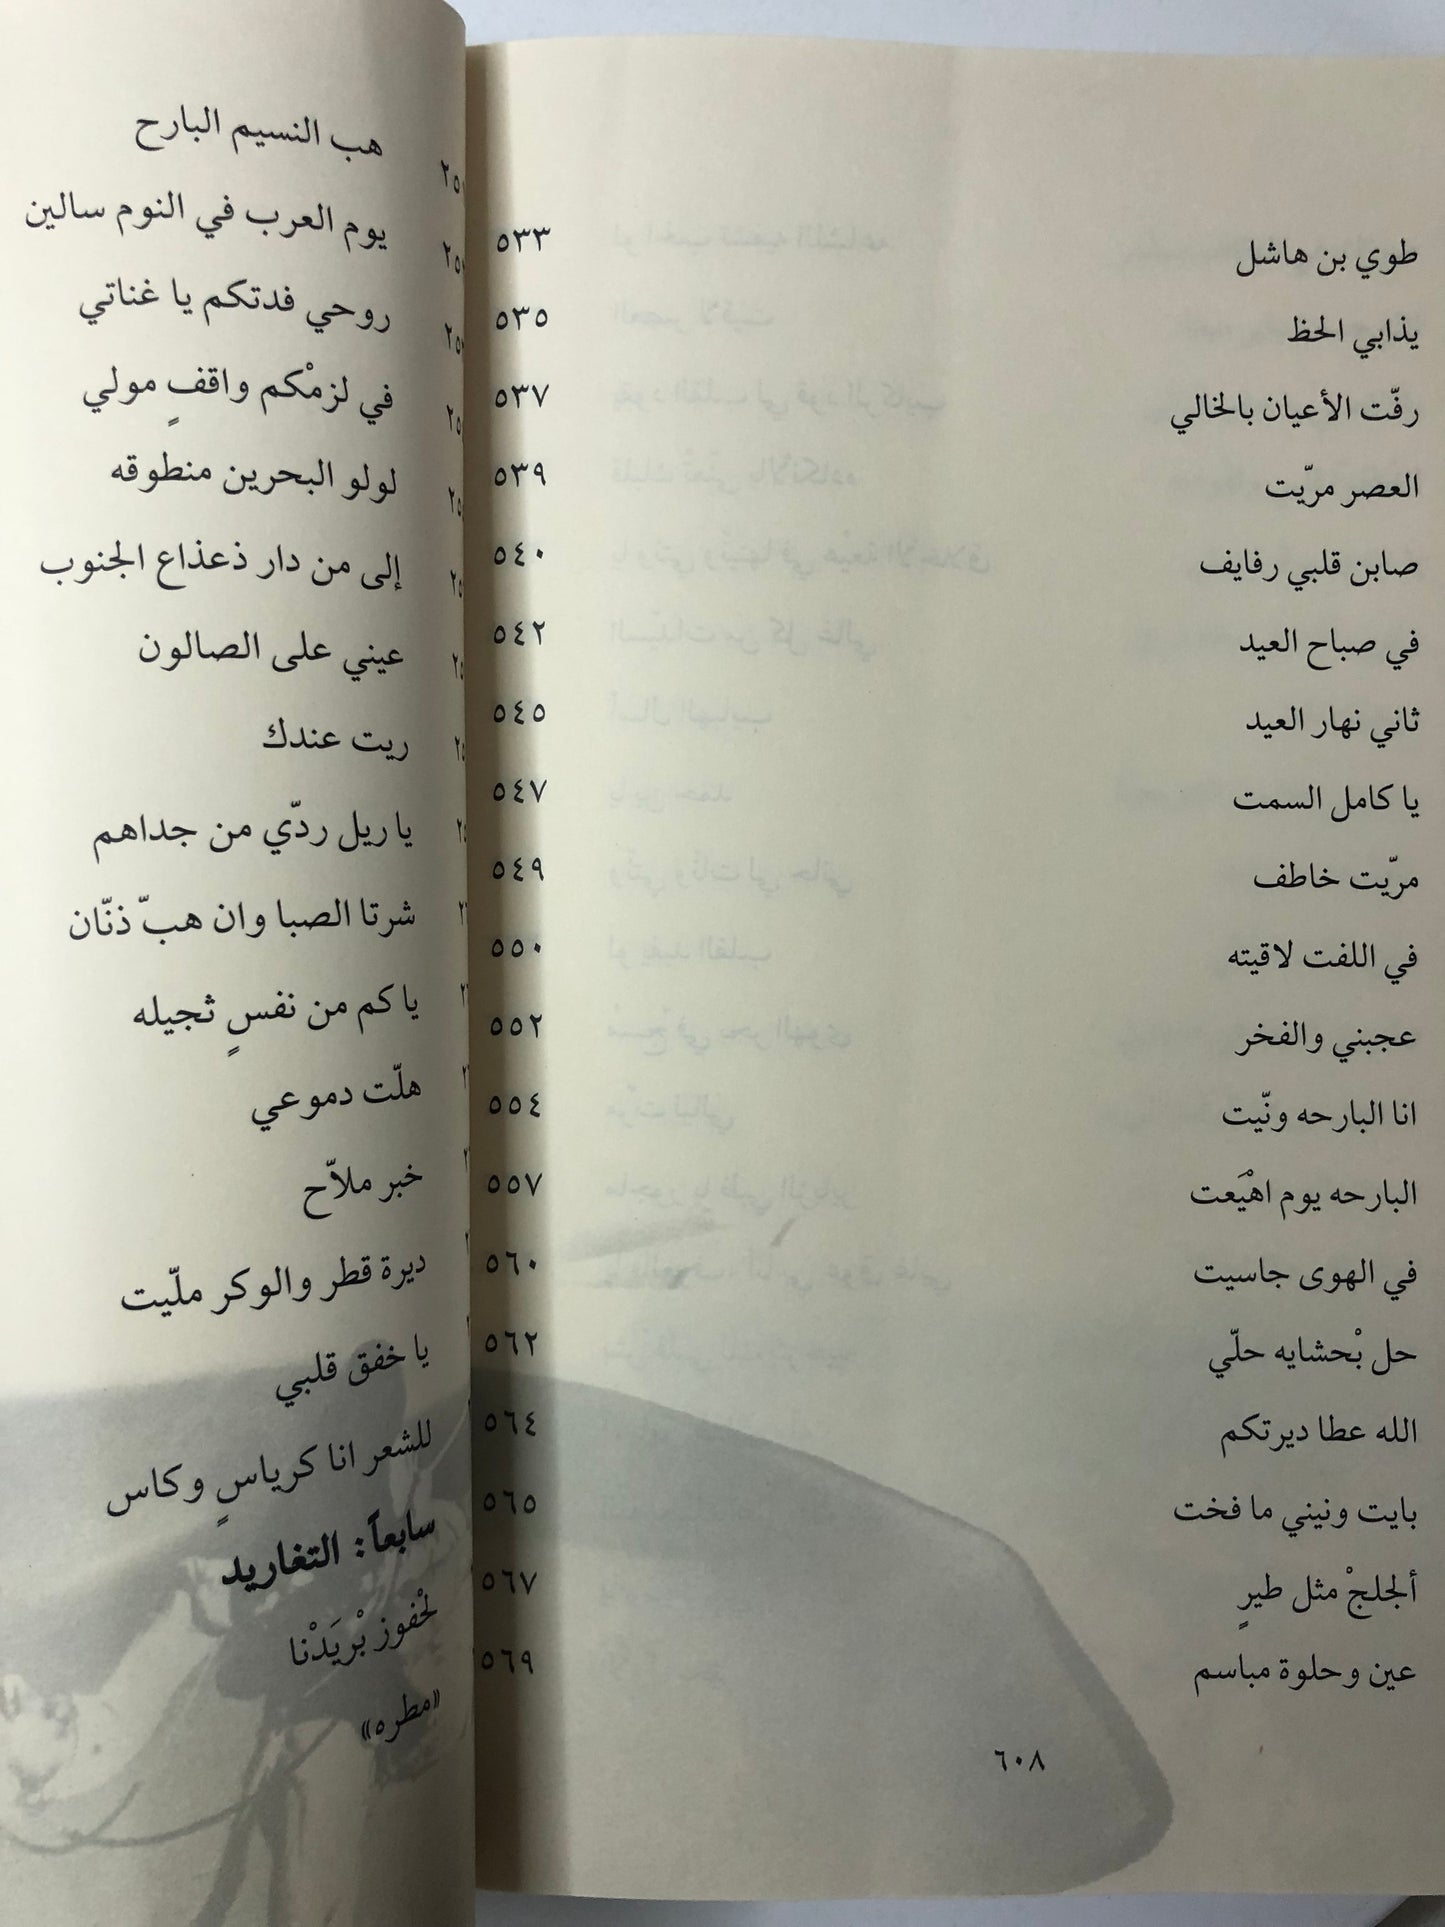 طوي بن هاشل ٥٣٣
يذابي الحظ ٥٣٥
رفّت الأعيان بالخالي ٥٣٧
العصر مرّيت ٥٣٩
صابن قلبي رفايف ٥٤٠
في صباح العيد ٥٤٢
ثاني نهار العيد ٥٤٥
يا كامل السمت ٥٤٧
مرّيت خاطف ٥٤٩
في اللفت لاقيته ٥٥٠
عجبني والفخر ٥٥٢
انا البارحه ونّيت ٥٥٤
البارحه يوم اهْيَعت ٥٥٧
في الهوى جاسيت ٥٦٠
حل بْحشايه حلّي ٥٦٢
الله عطا ديرتكم ٥٦٤
بايت ونيني ما فخت ٥٦٥
ألجلجْ مثل طيرٍ ٥٦٧
عين وحلوة مباسم ٥٦٩
٦٠٨
هب النسيم البارح
يوم العرب في النوم سالين
روحي فدتكم يا غناتي
في لزمْكم واقفٍ مولي
لولو البحرين منطوقه
إلى من دار ذعذاع الجنوب
عيني على الصالون
ريت عندك
يا ريل ردّي من جداهم
شرتا الصبا وان هبّ ذنّان
يا كم من نفسٍ ثجيله
هلّت دموعي
خبر ملاّح
ديرة قطر والوكر ملّيت
يا خفق قلبي
للشعر انا كرياسٍ وكاس
سابعاً: التغاريد
لحْفوز بْريَدْنا
«مطره»